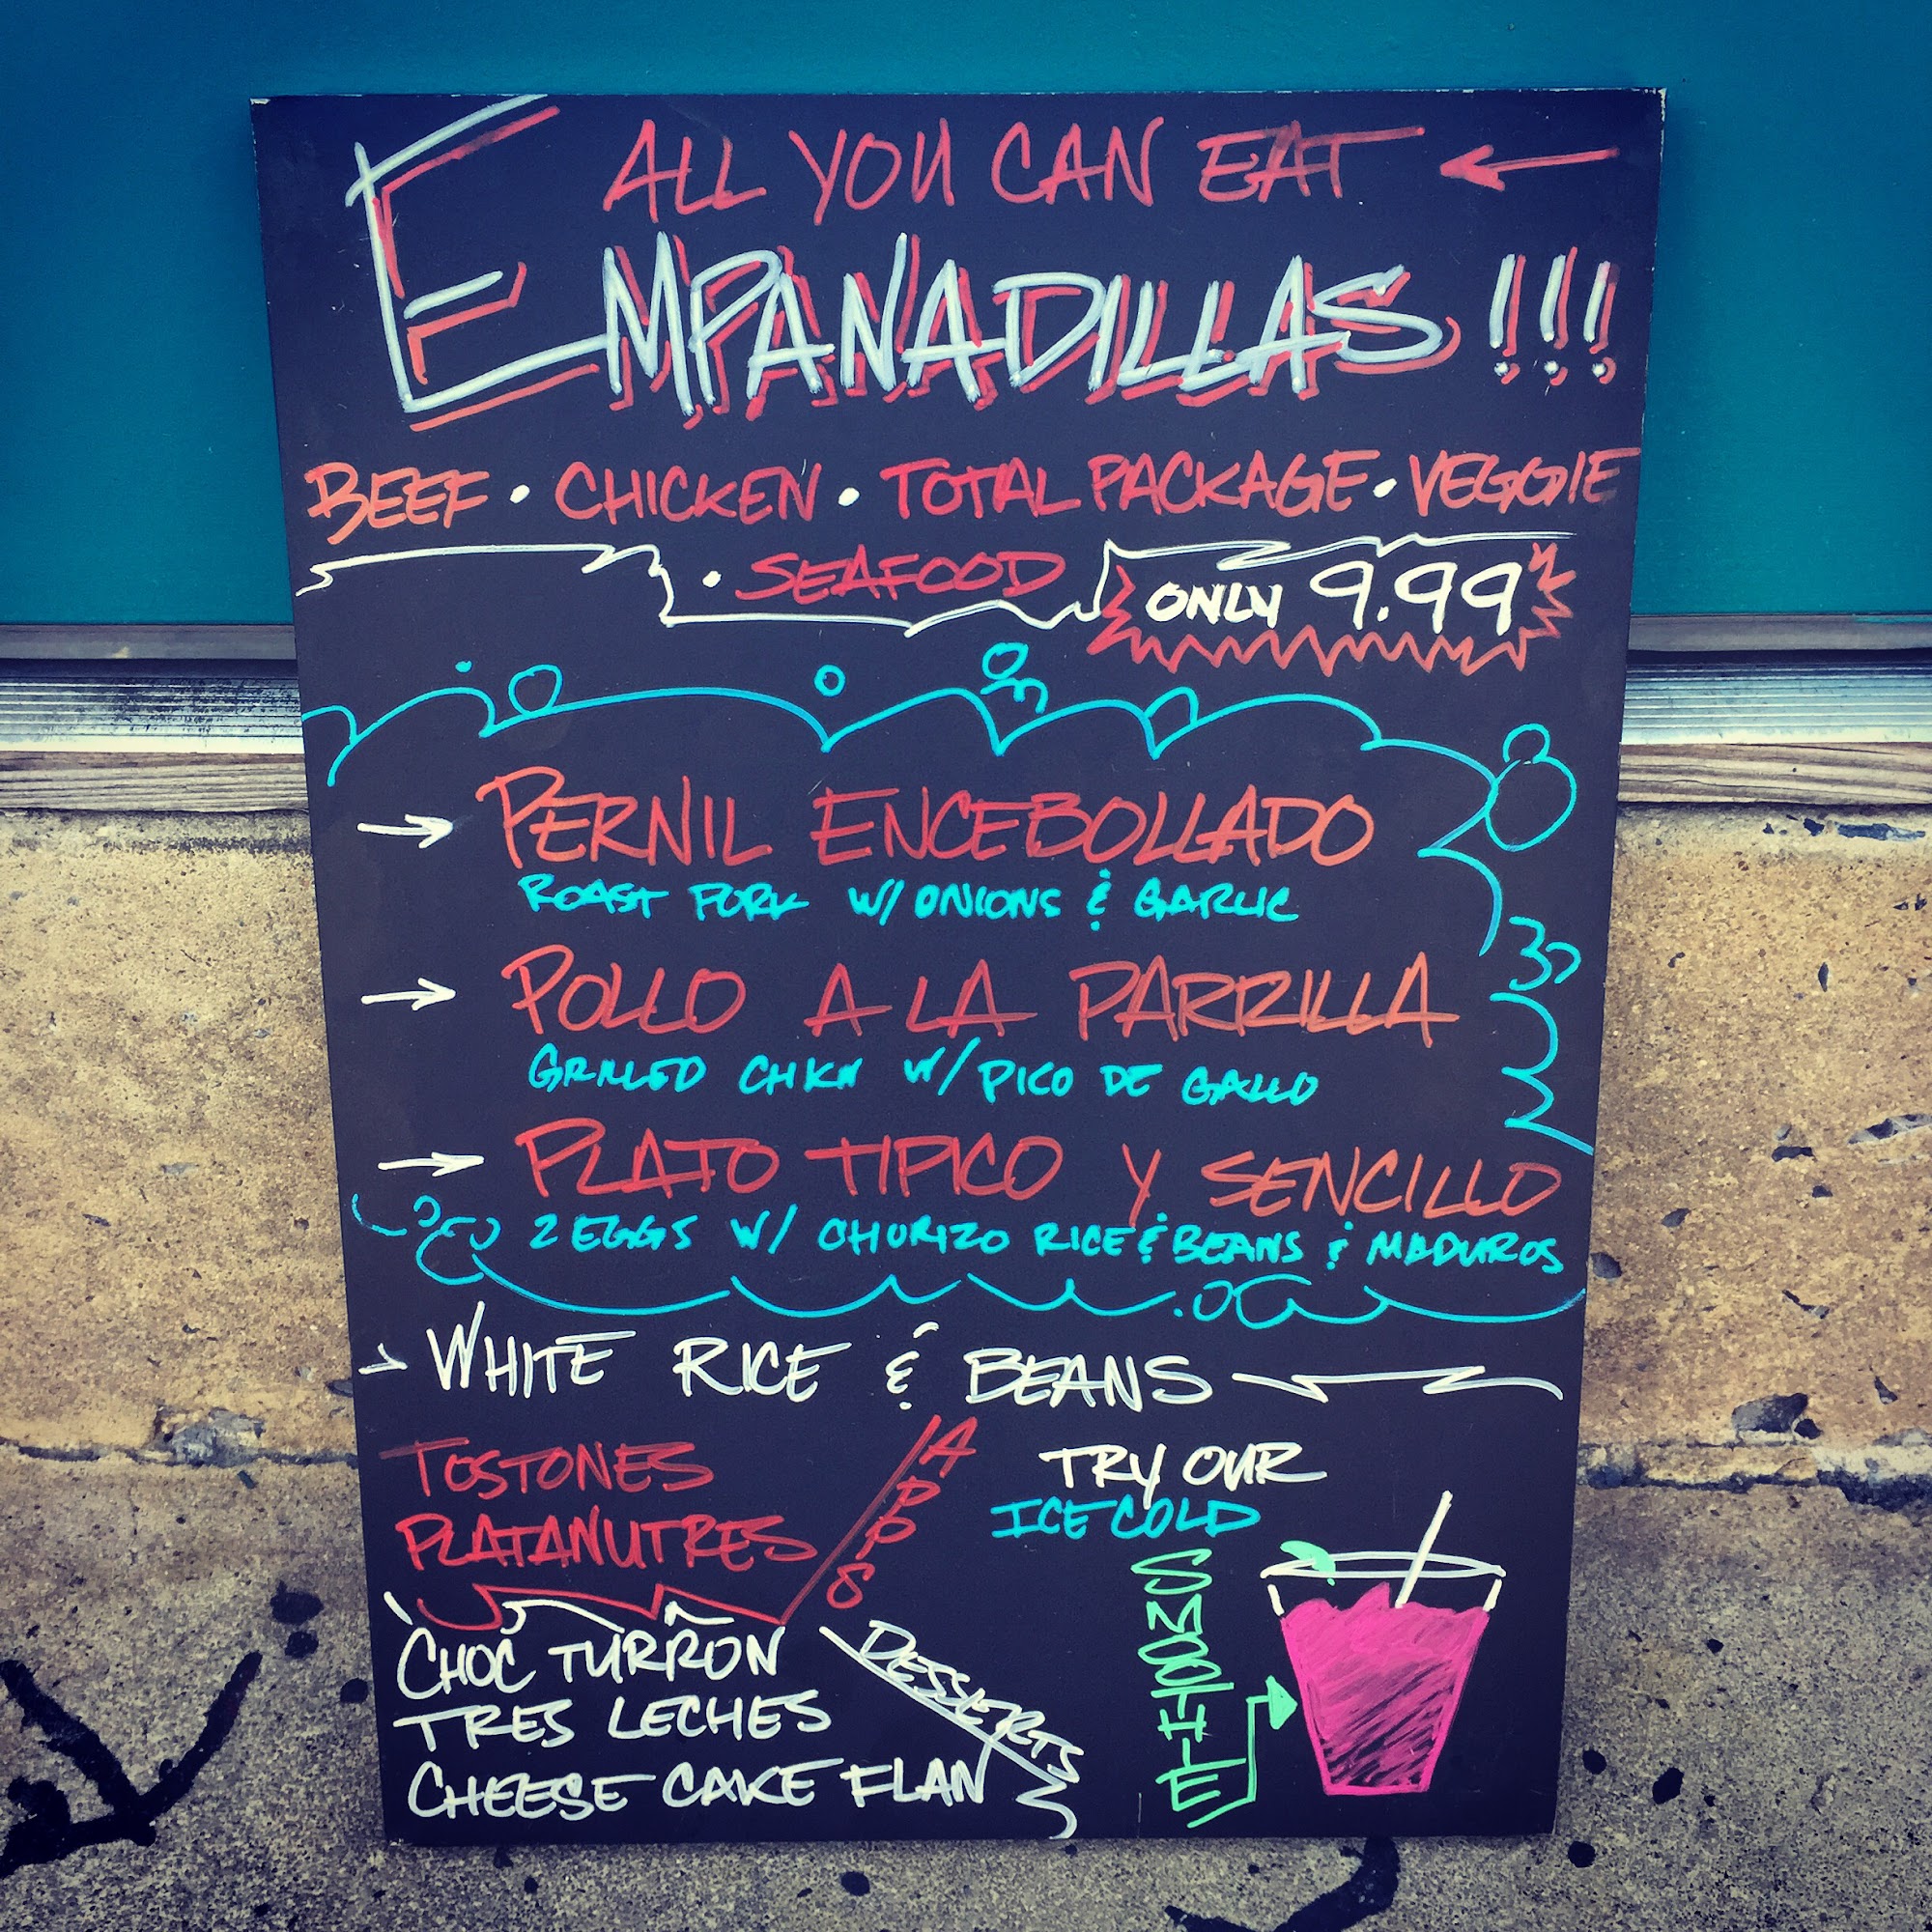 ALL YOU CAN EAT
EMPANADILLAS !!!
BEEF · CHICKEN · TOTAL PACKAGE · VEGGIE
· SEAFOOD
ONLY 9.99
PERNIL ENCEBOLLADO
ROAST PORK W/ ONIONS & GARLIC
POLLO A LA PARRILLA
GRILLED CHKN W/ PICO DE GALLO
PLATO TIPICO Y SENCILLO
2 EGGS W/ CHORIZO RICE & BEANS & MADUROS
WHITE RICE & BEANS
TOSTONES
PLATANUTRES
APPS
CHOC TURRON
TRES LECHES
CHEESE CAKE FLAN
DESSERTS
TRY OUR
ICE COLD
SMOOTHIE